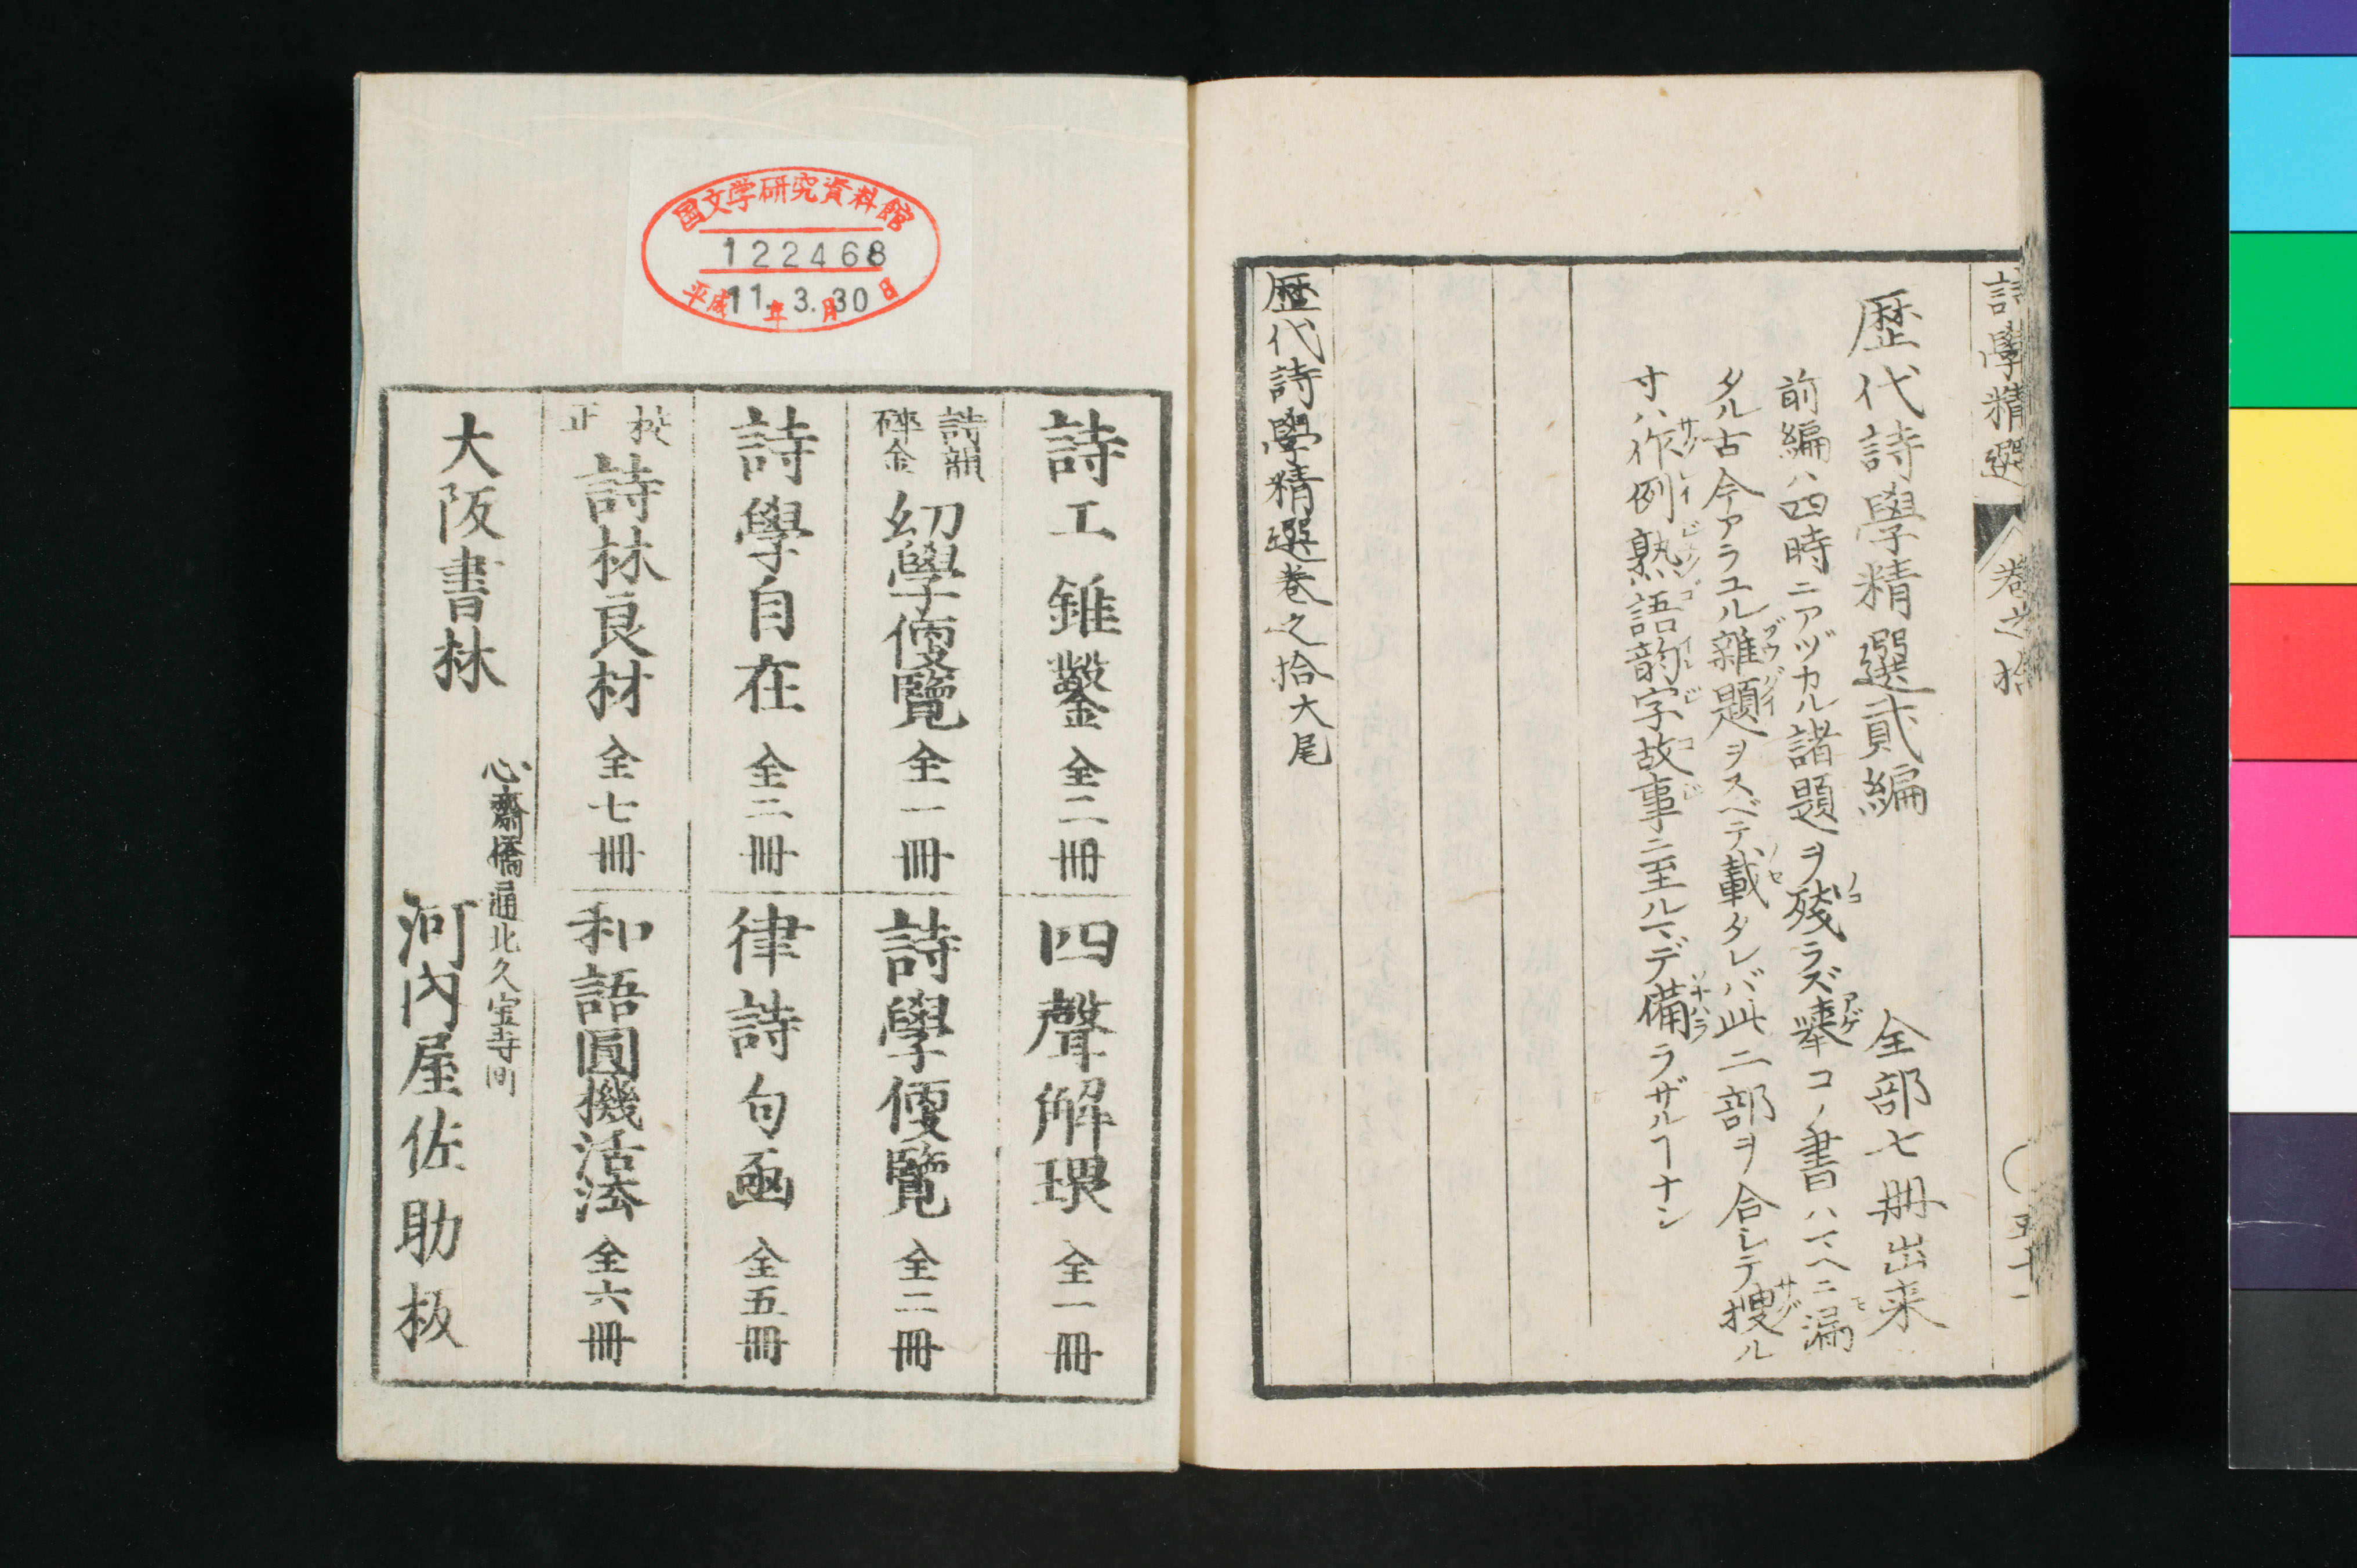 詩學精選
卷之拾
五十一
歷代詩學精選貳編　全部七冊出来
前編ハ四時ニアヅカル諸題ヲ殘ラズ舉コノ書ハマヘニ漏
タル古今アラユル雜題ヲスベテ載タレバ此二部ヲ合シテ捜ル
寸ハ作例熟語韵字故事ニ至ルマデ備ラザルヿナシ
歷代詩學精選卷之拾大尾
国文学研究資料館
122468
平成11年3.月30日
詩工錐鑿　全二冊
四聲解環　全一冊
詩韻碎金　幼學便覽　全一冊
詩學便覽　全二冊
詩學自在　全二冊
律詩句函　全五冊
校正　詩林良材　全七冊
和語圓機活法　全六冊
大阪書林
心齋橋通北久宝寺町
河內屋佐助板